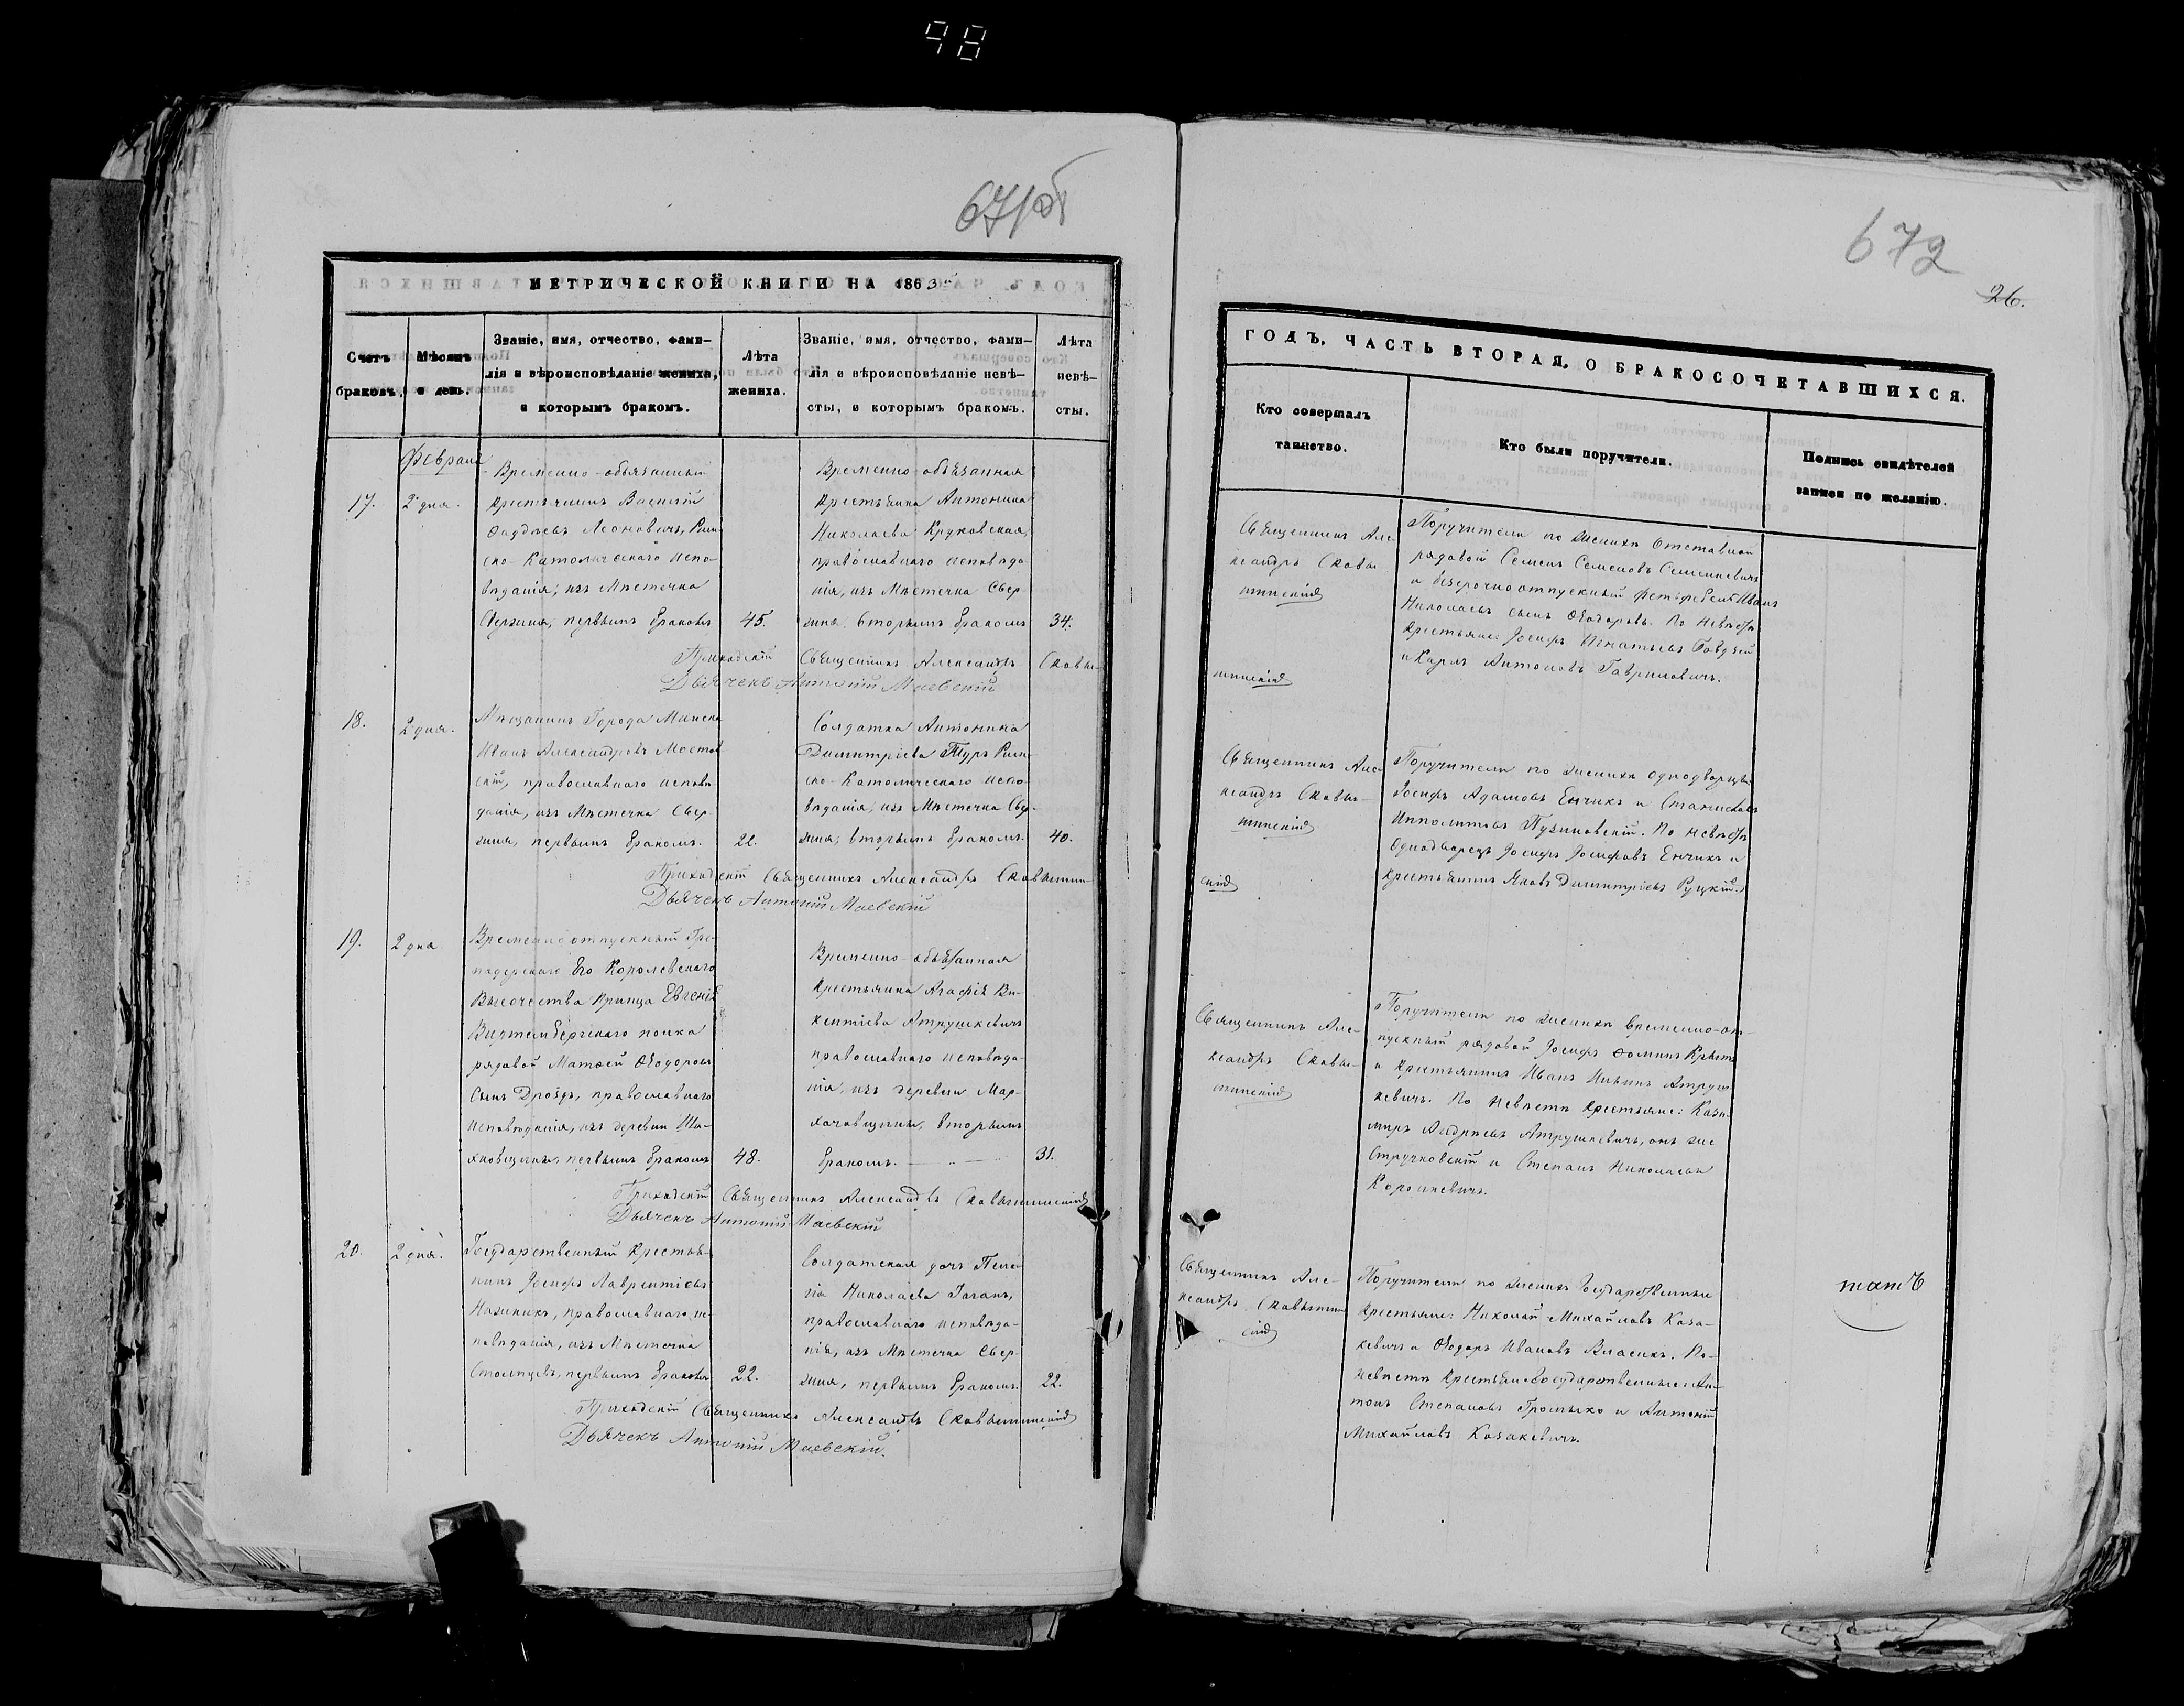 98
671об
МЕТРИЧЕСКОЙ КНИГИ НА 1863й
Счетъ браковъ.
Мѣсяцъ и день.
Званіе, имя, отчество, фами-
лія и вѣроисповѣданіе жениха,
и которымъ бракомъ.
Лѣта
жениха.
Званіе, имя, отчество, фами-
лія и вѣроисповѣданіе невѣ-
сты, и которымъ бракомъ.
Лѣта
невѣ-
сты.
Февраля
17.
2 дня.
Временно-обязанный
Крестьянинъ Василій
Фаддѣевъ Леоновичъ, Рим-
ско-Католическаго испо-
вѣданія, изъ Мѣстечка
Свержня, первымъ бракомъ
45.
Временно-обязанная
Крестьянка Антонина
Николаева Круковская,
православнаго исповѣда
нія, изъ Мѣстечка Свер-
жня, вторымъ бракомъ
34.
Приходскій Священникъ Александръ Сковы-
Дьячекъ Антоній Маевскій
18.
2 дня.
Мѣщанинъ Города Минска
Иванъ Александровъ Мостов
скій, православнаго исповѣ
данія, изъ Мѣстечка Свер-
жня, первымъ бракомъ.
22.
Солдатка Антонина
Димитріева Туръ Рим-
ско-Католическаго испо-
вѣданія, изъ Мѣстечка Свер-
жня, вторымъ бракомъ.
40.
Приходскій Священникъ Александръ
Дьячекъ Антоній Маевскій
19.
2 дня
Временно отпускный Гре-
надерскаго Его Королевскаго
Высочества Принца Евгенія
Виртембергскаго полка
рядовой Матѳей Ѳеодоровъ
Сынъ Дроздъ, православнаго
исповѣданія, изъ деревни
первымъ бракомъ
48.
Временно-обязанная
Крестьянка Агафія Ви-
кентіева Атрушкевичъ
православнаго исповѣда-
нія, изъ деревни Мар-
вторымъ
бракомъ.
31.
Приходскій Священникъ Александръ
Дьячекъ Антоній Маевскій
20.
2 дня.
Государственный Крестья-
нинъ Іосифъ Лаврентіевъ
православнаго ис-
повѣданія, изъ Мѣстечка
Столпцевъ, первымъ бракомъ
22.
Солдатская дочь Пела-
гія Николаева Гаганъ,
православнаго исповѣда-
нія, изъ Мѣстечка Свер-
жня, первымъ бракомъ.
22.
Приходскій Священникъ Александръ
Дьячекъ Антоній Маевскій.
672
26.
ГОДЪ, ЧАСТЬ ВТОРАЯ, О БРАКОСОЧЕТАВШИХСЯ.
Кто совершалъ
таинство.
Кто были поручители.
Подпись свидѣтелей
записи по желанію.
Священникъ Але-
ксандръ
Поручители по женихѣ Отставной
рядовой Семенъ Семеновъ
и безсрочноотпускный Иванъ
Николаевъ сынъ Ѳеодоровъ. По невѣстѣ
Крестьяне: Іосифъ Игнатьевъ
и Карлъ Антоновъ Гавриловичъ.
Священникъ Але-
ксандръ
Поручители по женихѣ Однодворцы:
Іосифъ Адамовъ Енчикъ и Станиславъ
Ипполитовъ Пузиновскій. По невѣстѣ
Однодворецъ Іосифъ Іосифовъ Енчикъ и
крестьянинъ Яковъ Димитріевъ Руцкій.
Священникъ Але-
ксандръ
Поручители по женихѣ временно-от-
пускный рядовой Іосифъ Ѳоминъ
и Крестьянинъ Иванъ Атруш-
кевичъ. По Невѣстѣ Крестьяне: Кази-
миръ Андреевъ Атрушкевичъ, онъ же
Стручковскій и Степанъ Николаевъ
Корошкевичъ.
Священникъ Але-
ксандръ
Поручители по женихѣ Государственные
Крестьяне: Николай Михайловъ Каза-
кевичъ и Ѳеодоръ Ивановъ Власикъ. По-
невѣстѣ Крестьяне Государственные: Ан-
тонъ Степановъ Громыко и Антоній
Михайловъ Казакевичъ.